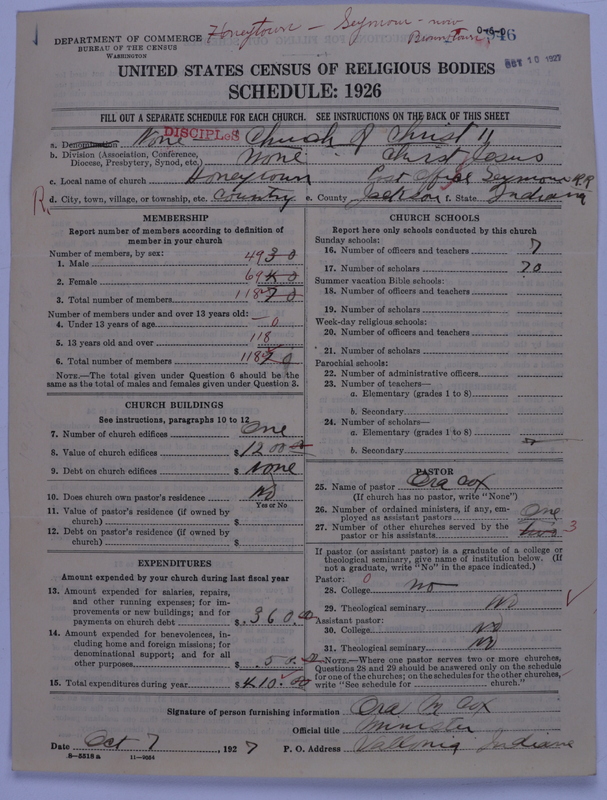 Honeytown - Seymour - now
Brownstown
DEPARTMENT OF COMMERCE
BUREAU OF THE CENSUS
WASHINGTON
OCT 10 1927
UNITED STATES CENSUS OF RELIGIOUS BODIES
SCHEDULE: 1926
FILL OUT A SEPARATE SCHEDULE FOR EACH CHURCH. SEE INSTRUCTIONS ON THE BACK OF THIS SHEET
DISCIPLES
a. Denomination None Church of Christ
b. Division (Association, Conference, Diocese, Presbytery, Synod, etc.) None Christ Jesus
c. Local name of church Honeytown Post Office Seymour R.R.
R. d. City, town, village, or township, etc. Country e. County Jackson f. State Indiana
MEMBERSHIP
Report number of members according to definition of member in your church
Number of members, by sex:
1. Male 49 30
2. Female 69 40
3. Total number of members 118 70
Number of members under and over 13 years old:
4. Under 13 years of age — 0
5. 13 years old and over 118
6. Total number of members 118
NOTE.—The total given under Question 6 should be the same as the total of males and females given under Question 3.
CHURCH BUILDINGS
See instructions, paragraphs 10 to 12
7. Number of church edifices One
8. Value of church edifices $1200
9. Debt on church edifices $ None
10. Does church own pastor's residence No
Yes or No
11. Value of pastor's residence (if owned by church) $
12. Debt on pastor's residence (if owned by church) $
EXPENDITURES
Amount expended by your church during last fiscal year
13. Amount expended for salaries, repairs, and other running expenses; for improvements or new buildings; and for payments on church debt $ 360.00
14. Amount expended for benevolences, including home and foreign missions; for denominational support; and for all other purposes $ 50.00
15. Total expenditures during year $410.00
CHURCH SCHOOLS
Report here only schools conducted by this church
Sunday schools:
16. Number of officers and teachers 7
17. Number of scholars 70
Summer vacation Bible schools:
18. Number of officers and teachers
19. Number of scholars
Week-day religious schools:
20. Number of officers and teachers
21. Number of scholars
Parochial schools:
22. Number of administrative officers
23. Number of teachers—
a. Elementary (grades 1 to 8)
b. Secondary
24. Number of scholars—
a. Elementary (grades 1 to 8)
b. Secondary
PASTOR
25. Name of pastor Ora Cox
(If church has no pastor, write "None")
26. Number of ordained ministers, if any, employed as assistant pastors One
27. Number of other churches served by the pastor or his assistants two 3
If pastor (or assistant pastor) is a graduate of a college or theological seminary, give name of institution below. (If not a graduate, write "No" in the space indicated.)
Pastor: 0
28. College No
29. Theological seminary No
Assistant pastor:
30. College No
31. Theological seminary No
NOTE.—Where one pastor serves two or more churches, Questions 28 and 29 should be answered only on the schedule for one of the churches; on the schedules for the other churches, write "See schedule for church."
Signature of person furnishing information Ora M Cox
Official title Minister
Date Oct 7, 1927 P. O. Address Vallonia Indiana
8-5518 a 11-9034